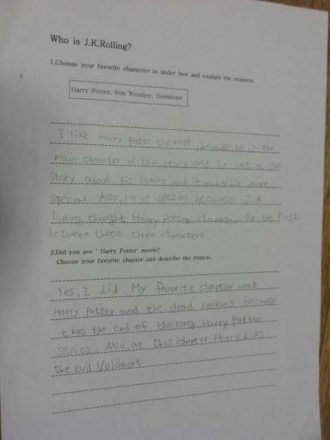 Who is J.K.Rolling?
1.Choose your favorite character in under box and explain the reason.
Harry Potter, Ron Weasley, Hermione
I like Harry Potter the most, because he is the
main character of the story and he has a
story about his family and it makes him more
special. Also, he is special because J.K
thought Harry Potter character for the first
between those three characters.
2.Did you see ' Harry Potter' movie?
Choose your favorite chapter and describe the reason.
Yes, I did. My favorite chapter was
Harry Potter and the dead because
it has the end of the long Harry Potter
series. Also, at this chapter Harry kills
the evil Voldmort.